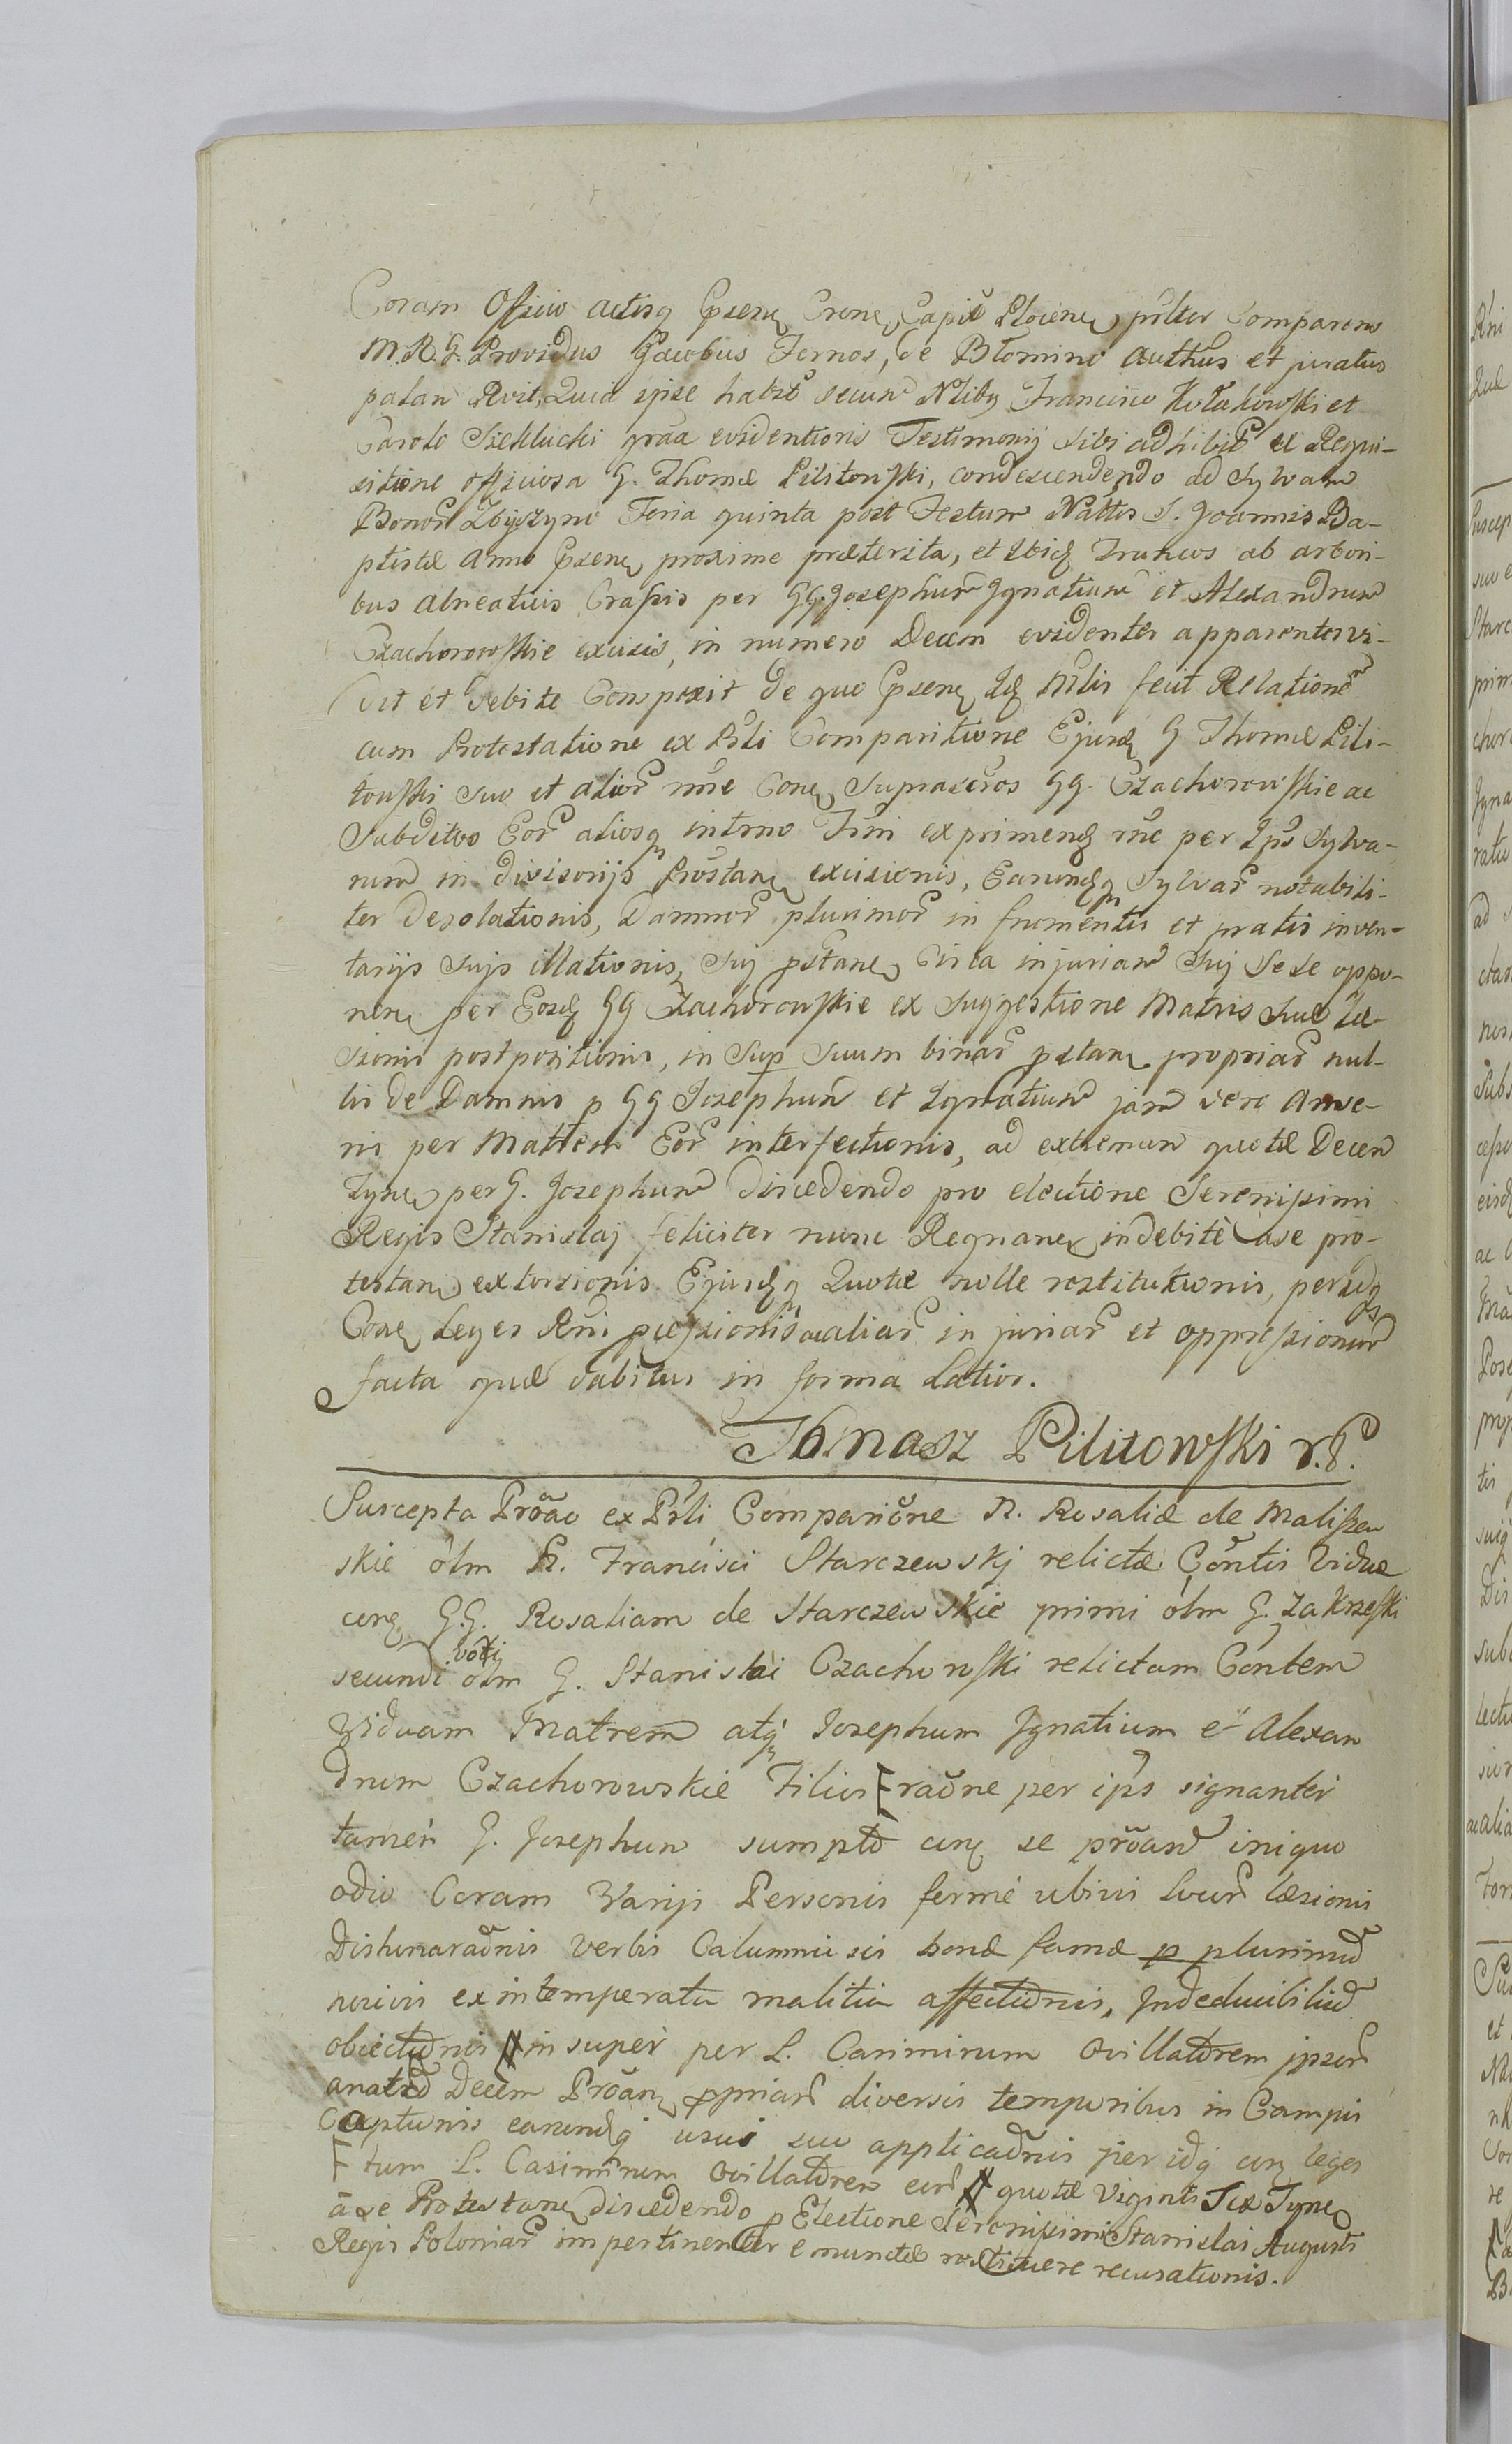 Coram Officio Actisq Pnsenq Crene, Capit Plocenq pnlter Comparens
M. R. G. Providus Jacobus Fornos, de Blomino Authus et juratus
palam Rvit, Quia ipse habito secum Nlibq Francisco Kołakowski et
Carolo Siekłucki graa evidentioris Testimonij sibi adhibit ex Requi-
sitione officiosa G. Thomæ Pilitowski, condescendendo ad Sylvam
Bonor Zbijszyno Feria quinta post Festum Nattis S. Joannis Ba-
ptistæ Anno Psenq proxime præterita, et Ibiq Truncos ab arbori-
bus alneatuis Crassis per GG. Josephum Ignatium et Alexandrum
Czachorowskie excisis, in numero Decem evidenter apparenter vi-
dit et debite Conspexit de quo Psenq Idq Mlis fecit Relatione
cum Protestatione ex Prsli Comparitione Ejusdq G Thomæ Pili-
towski suo et alior nne Conq Suprascros GG. Czachorowskie ac
Subditos Eor aliosq intmo Tmi exprimendq rne per Ips Sylva-
rum in divisorijs Prostanq excisionis, Earundqq Sylvar notabili-
ter Desolationis, Damnor plurimor in frumentis et pratis inven-
tarijs sujs illationis, Suj pstanq Circa injuriam Suj Sese oppo-
nenq per Eosdq GG Czachorowskie ex Suggestione Matris Suæ Læ-
sionis postpositionis, in Sup Suum binar pstanq propriar nul-
lis de Damnis p GG Josephum et Ignatium jam vero Anse-
ris per Mattem Eor interfectionis, ad extremum quotæ Decem
Tynq per G. Josephum discedendo pro electione Serenissimi
Regis Stanislaj feliciter nunc Regnanq indebite a se pro-
testanq extorsionis Ejusdqq Quotæ nolle restitutionis, per idqq
Conq Leges Rni pcessionis aaliar injuriar et oppressionum
facta quæ dabitur in forma Latior.
Tomasz Pilitowski r.P.
Suscepta Proao ex Prsli Comparitone N. Rosaliæ de Maliszew
skie olm N. Francisci Starczewskj relictæ Contis Viduæ
conq G.G. Rosaliam de Starczewskie primi olm G. Zakrzeski
secundi voti olm G. Stanislai Czachorowski relictam Contem
Viduam Matrem atq Josephum Ignatium et Alexan
drum Czachorowskie Filios raone per ips signanter
tamen G. Josephum sumpto conq se proanq iniquo
odio Coram Varijs Personis ferme ubivis locor læsionis
Dishonoraonis verbis Calumniosis bonæ famæ p plurimum
nocivis ex intemperata malitia affectionis, Indeducibilium
obiectionis insuper per L. Casimirum Ovillatorem ipsor
anatum Decem Proanq ppriar diversis temporibus in Campis
Captionis earundq usui suo applicaonis per idq conq leges
tum L. Casimirum Ovillatorem eor quotæ Viginti Sex Tynq
a se Protestanq discedendo p Electione Serenissimi Stanislai Augusti
Regis Poloniar impertinenter emunctæ restituere recusationis.